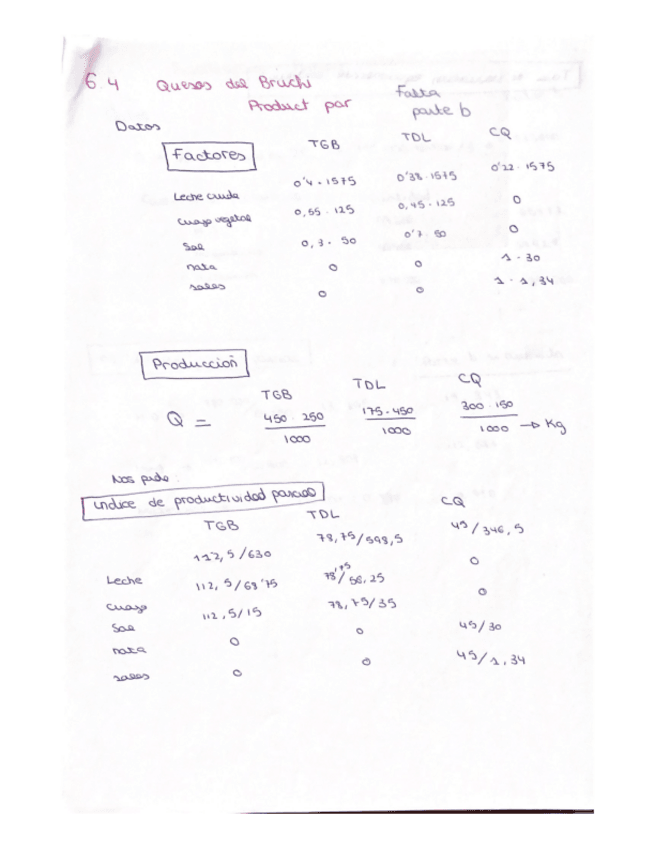 6.4 Quesos del Bruchi
Product par
Falta
parte b
Datos
Factores TGB TDL CQ
Leche cruda 0'4 . 1575 0'38 . 1575 0'22 . 1575
Cuajo vegetal 0,55 . 125 0,45 . 125 0
Sal 0,3 . 50 0'7 . 50 0
nata 0 0 1 . 30
sales 0 0 1 . 1,34
Producción
TGB TDL CQ
Q = 450 . 250 / 1000 175 . 450 / 1000 300 . 150 / 1000 → Kg
Nos pide :
indice de productividad parcial
TGB TDL CQ
Leche 112,5/630 78,75/598,5 45/346,5
Cuajo 112,5/68'75 78'75/56,25 0
Sal 112,5/15 78,75/35 0
nata 0 0 45/30
sales 0 0 45/1,34